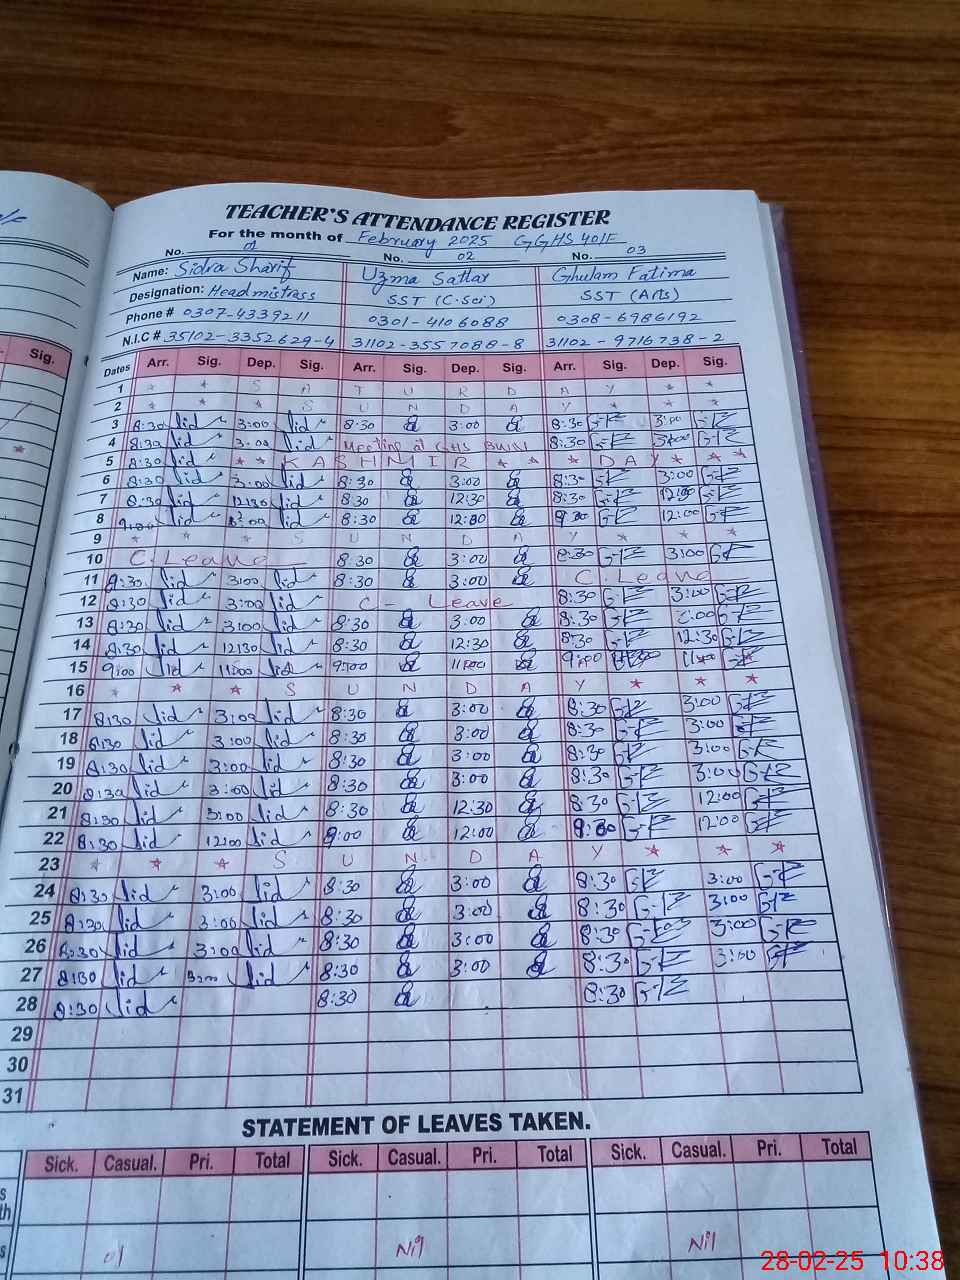 TEACHER'S ATTENDANCE REGISTER
For the month of February 2025 GGHS 401F
No. 01 No. 02 No. 03
Name: Sidra Sharif Uzma Sattar Ghulam Fatima
Designation: Headmistrass SST (C.Sci) SST (Arts)
Phone # 0307-4339211 0301-4106088 0308-6986192
N.I.C # 35102-3352629-4 31102-3557088-8 31102-9716738-2
Sig. Dates Arr. Sig. Dep. Sig. Arr. Sig. Dep. Sig. Arr. Sig. Dep. Sig.
1 * * S A T U R D A Y * *
2 * * * S U N D A Y * * *
3 8:30 3:00 8:30 3:00 8:30 3:00
4 8:30 3:00 Meeting at GHS 8:30 3:00
5 8:30 * * K A S H M I R * * * D A Y * * *
6 8:30 3:00 8:30 3:00 8:30 3:00
7 8:30 12:30 8:30 12:30 8:30 12:00
8 8:30 12:00
9 * * * S U N D A Y * * *
10 C. Leave 8:30 3:00 8:30 3:00
11 8:30 3:00 8:30 3:00 C. Leave
12 8:30 3:00 C- Leave 8:30 3:00
13 8:30 3:00 8:30 3:00 8:30
14 8:30 12:30 8:30 12:30 8:30 12:30
15 9:00 11:00 9:00 11:00 9:00
16 * * * S U N D A Y * * *
17 8:30 3:00 8:30 3:00 8:30 3:00
18 8:30 3:00 8:30 3:00 8:30 3:00
19 8:30 3:00 8:30 3:00 8:30 3:00
20 8:30 3:00 8:30 3:00 8:30 3:00
21 8:30 3:00 8:30 12:30 8:30 12:00
22 8:30 12:00 9:00 12:00 12:00
23 * * * S U N D A Y * * *
24 8:30 3:00 8:30 3:00 8:30 3:00
25 8:30 3:00 8:30 3:00 8:30 3:00
26 8:30 3:00 8:30 3:00 8:30 3:00
27 8:30 3:00 8:30 3:00 8:30 3:00
28 8:30 8:30 8:30
29
30
31
STATEMENT OF LEAVES TAKEN.
Sick. Casual. Pri. Total Sick. Casual. Pri. Total Sick. Casual. Pri. Total
01 Nil Nil
28-02-25 10:38